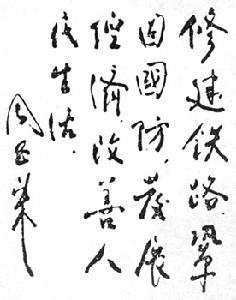 修建铁路巩
固國防、发展
經濟、改善人
民生活。
周恩来